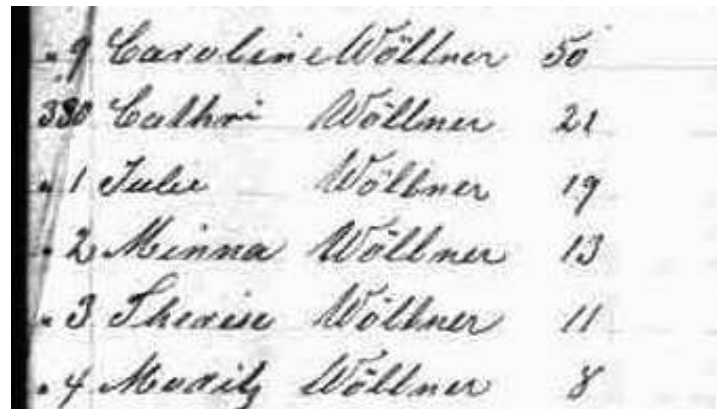 " 9 Caroline Wöllner 50
380 Cathri Wöllner 21
" 1 Julie Wöllner 19
" 2 Minna Wöllner 13
" 3 Therise Wöllner 11
" 4 Moritz Wöllner 8